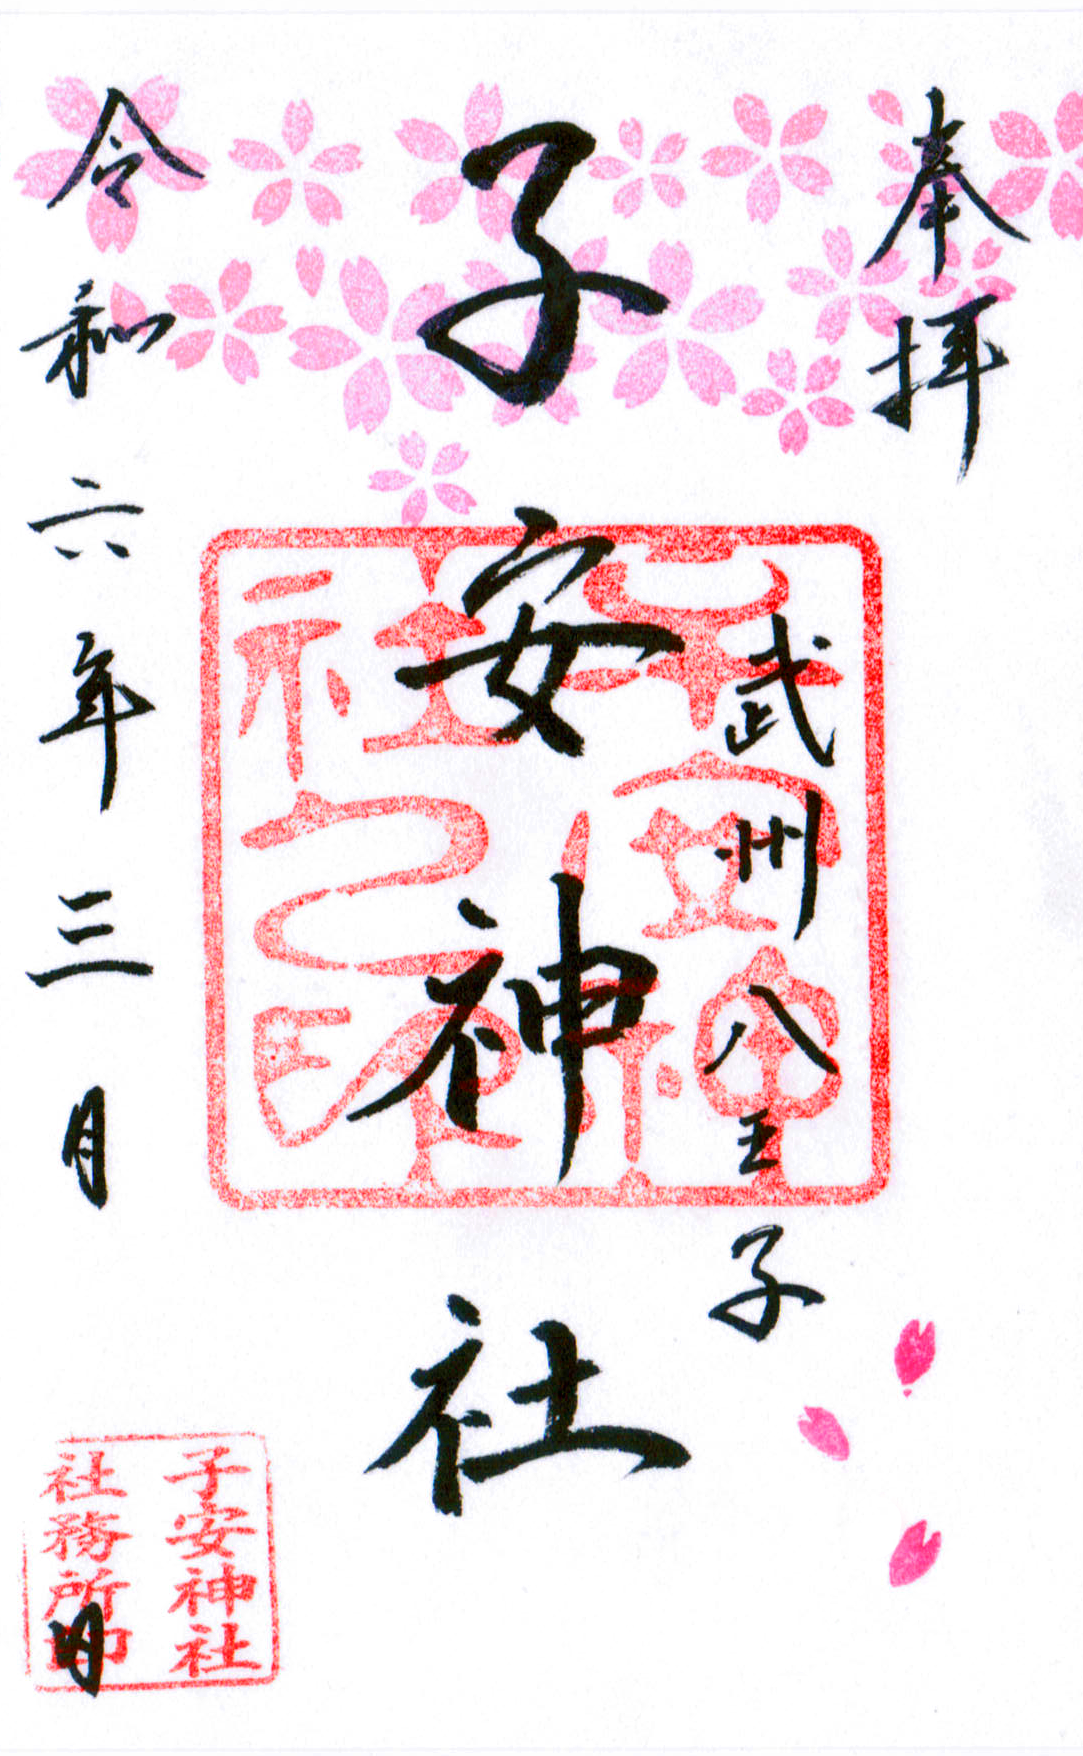 奉拝
武州八王子
子安神社
子安神社之印
令和六年三月 日
子安神社
社務所印